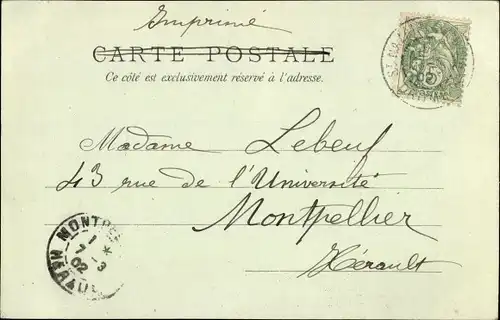 Imprimé
CARTE POSTALE
Ce côté est exclusivement réservé à l'adresse.
Madame Lebeuf
43 rue de l'Université
Montpellier
Hérault
MONTPE
7 - 3
02